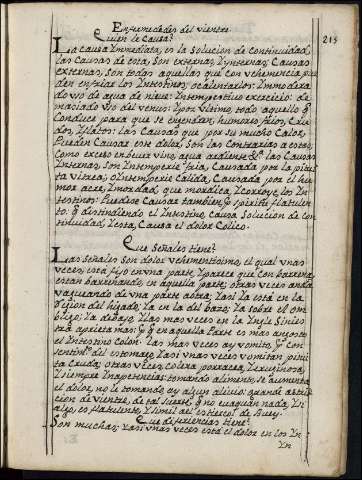 Enfermedades del vientre
Quien le Causa?
213
La causa Ymmediata, es la solucion de continuidad,
las causas de esta, son externas, Ynternas; Causas
externas, son todas aquellas que con vehemencia pue
den enfriar los Yntestinos, o calentarlos: Ymmodera
do vso de agua de nieve: Yntempestivo exercicio: de
maciado vso del venus: Y por vltimo, todo aquello q
Conduce para que se engendren, humores frios, Cru
dos, Y flatos: las Causas que por su mucho Calor,
Pueden Causar este dolor, son las contrarias a estas,
Como exceso en buen vino, agua ardiente &c. las Causas
Ynternas, son Yntemperie fria, Causada por la pitui
ta vitrea; o Yntemperie Calida, Causada por el hu
mor acre, Y mordaz, que mordica, Y corroye los Yn
testinos: Puedese Causar tambien, q spiritu flatulen
to, q distindiendo el Yntestino, causa Solucion de con
tinuidad, Y esta, Causa el dolor Colico.
Que Señales tiene?
Las Señales son dolor vehementissimo, el qual vnas
veces, esta fijo en vna parte, Y parece que con barrena
estan barrenando, en aquella parte; otras veces anda
vagueando de vna parte a otra; Y asi Ya esta en la
Region del higado, Ya en la del bazo, Ya sobre el om
bligo, Ya debajo, Y las mas veces en la Yngle Sinies
tra aprieta mas: q en aquella Parte es mas angosto
el Yntestino Colon: las mas veces ay vomito, q Con
sentim.to del estomago, Y asi vnas veces vomitan pitui
ta Cruda, otras veces, Colera porracea, Y eruginosa,
Y siempre Ynapetencias: tomando alimento, se aumenta
el dolor, no le tomando, ay algun alivio: quando astric
cion de vientre, de tal suerte, q no euaquan nada, Y si
algo, es flatulento, Y simil al estiercol de Buey.
Que diferiencias tiene?
Son muchas; Y asi vnas veces esta el dolor en los Yn
Yn